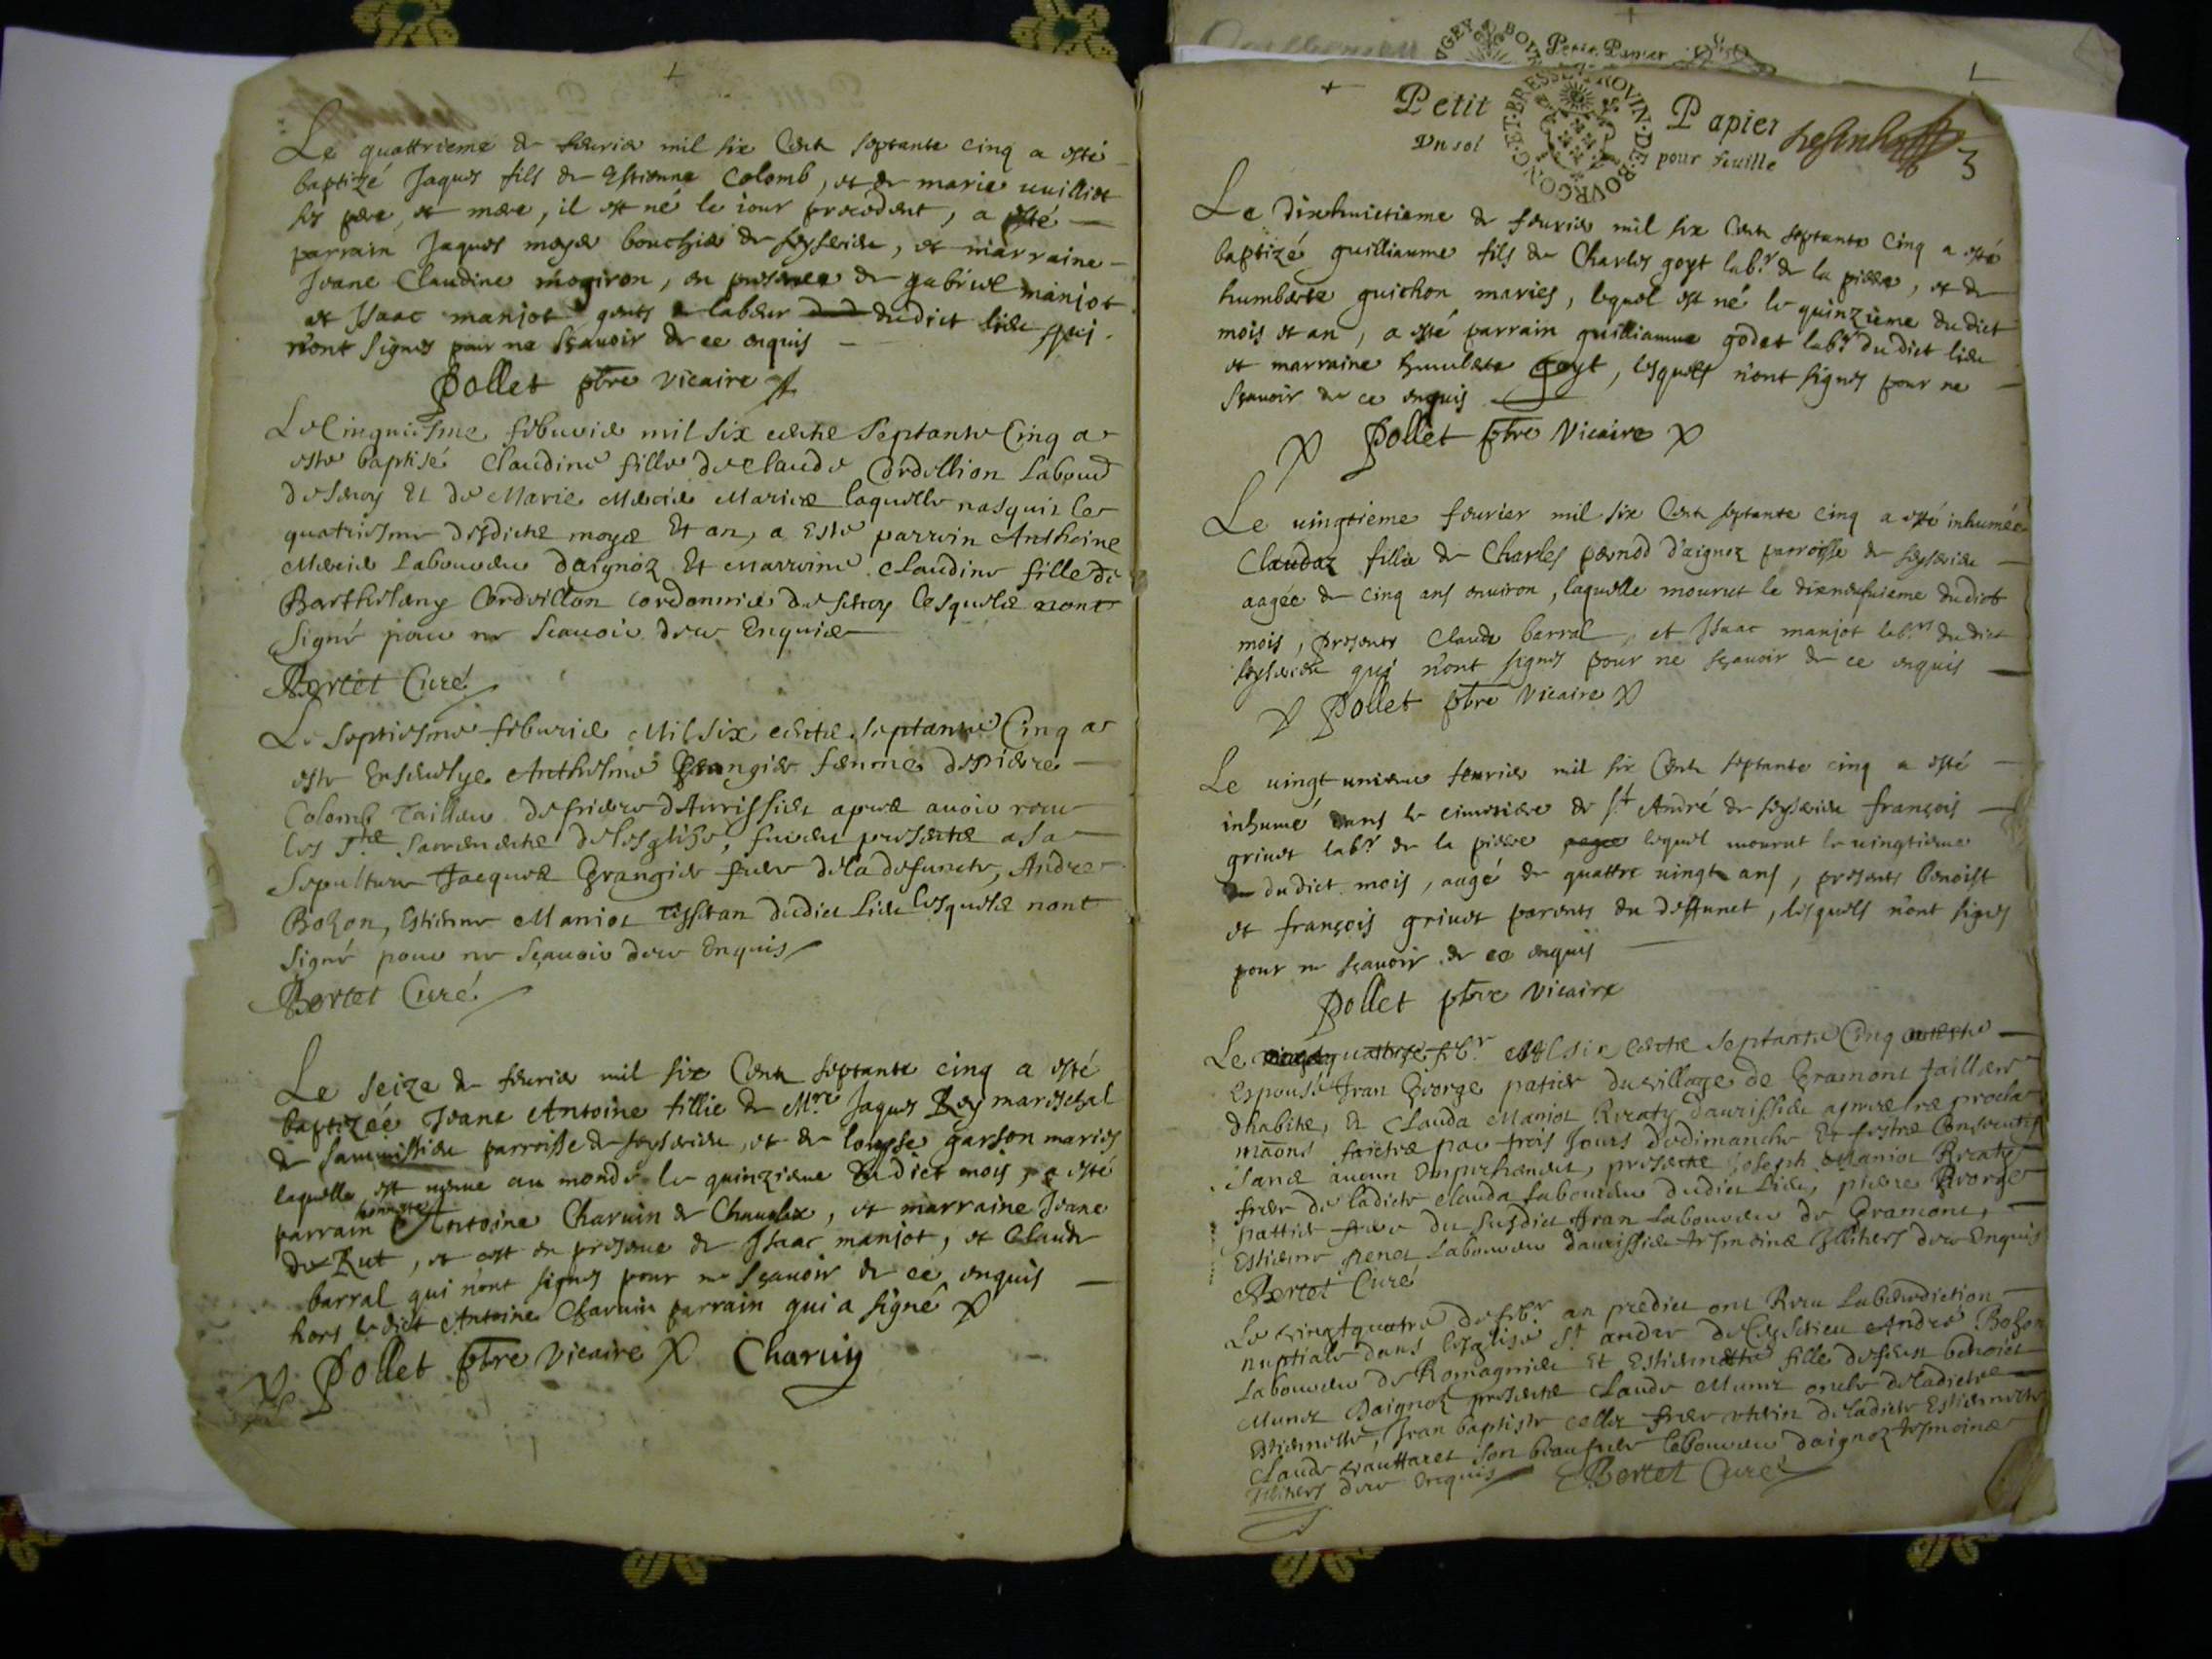 Le quattrieme de feurier mil six Cent septante cinq a esté
baptizé Jaques fils de Estienne Colomb, et de marie uuilliet
ses pere et mere, il est né le iour precedent, a esté
parrain Jaques meyer bouchier de seyserieu, et marraine
Jeane Claudine mogiron, en presence de gabriel manjot
et Isaac manjot gents de labeur dudict lieu qui
n'ont signes pour ne sçauoir de ce enquis
Pollet pbre vicaire
Le Cinquiesme feburier mil six cents Septante Cinq a
este baptisé Claudine fille de Claude Cordellion Labour
de Et de Marie Mercier Mariez laquelle nasquit le
quatriesme desdicts moys Et an, a Esté parrain Anthoine
Mercier Laboureur daignoz Et Marraine Claudine fille de
Barthelemy Cordeillon Cordonnier de lesquels nont
Signé pour ne Scauoir de ce Enquis
Bertet Curé
Le Septiesme feburier Mil Six cents Septante Cinq a
este Enseuelye Anthelme Grangier femme de Piere
Colomb Tailleur dAurissieu apres auoir receu
les Sts Sacrements de lesglize, furent presents a Sa
Sepulture Jacques Grangier frere de la defuncte, Andre
Bozon, Estienne Maniot dudict Lieu lesquels nont
Signé pour ne Sçauoir de ce Enquis
Bertet Curé
Le seize de feurier mil six Cent septante cinq a esté
baptizée Jeane Antoine fillie de Mre Jaques Rey mareschal
de parroisse de seyserieu, et de loysse garson maries
laquelle est uenue au monde le quinzieme dudict mois, a esté
honneste
parrain Antoine Charuin de, et marraine Jeane
du Rut, et cest en presence de Isaac manjot, et Claude
barral qui n'ont signes pour ne sçauoir de ce enquis
hors le dict Antoine Charuin parrain qui a signé
Pollet pbre vicaire Charuin
Petit Papier
Un sol pour feuille
BOVRGONG.ET.BRESSE PROVIN.DE
3
Le dixhuictieme de feurier mil six Cent septante Cinq a esté
baptizé guilliaume fils de Charles goyt labr de la piere, et de
humberte guichon maries, lequel est né le quinzieme dudict
mois et an, a esté parrain guilliaume godet labr dudict lieu
et marraine humberte goyt, lesquels n'ont signes pour ne
sçauoir de ce enquis
Pollet pbre Vicaire
Le uingtieme feurier mil six Cent septante cinq a esté inhumée
Claudaz fillie de Charles pernod d'aignoz parroisse de seyserieu
aagée de cinq ans enuiron, laquelle mourut le dixneufuieme dudict
mois, presents Claude barral, et Isaac manjot labrs dudict
seyserieu qui n'ont signes pour ne sçauoir de ce enquis
Pollet pbre Vicaire
Le uingt unieme feurier mil six Cent septante cinq a esté
inhumé dans le cimetiere de St André de seyserieu françois
griuet labr de la piere lequel mourut le uingtieme
dudict mois, aagé de quattre uingt ans, presents benoist
et françois griuet parents du deffunct, lesquels n'ont signes
pour ne sçauoir de ce enquis
Pollet pbre vicaire
Le febr Mil six cents Septante Cinq
Espousé Jean George patier du village de Gramont tailleur
dhabits, Et Clauda Maniot daurissieu apres
faictes par trois Jours de dimanche Et festes Consecutifs
Sans aucun Empeschement, presents Joseph Maniot
frere de ladicte Clauda Laboureur dudict Lieu, piere George
pattier frere du Susdict Jean Laboureur de Gramont,
Estienne Laboureur daurissieu tesmoins Illiters de ce Enquis
Bertet Curé
Le vingtquatre de febr an predict ont Receu La benediction
nuptiale dans lesglize St andre de Ceyserieu André Bozon
Laboureur de Romagnieu Et Estiennette fille de feu benoict
Munet Daignoz presents Claude Munet oncle de ladicte
Estiennette, Jean baptiste frere vterin de ladicte Estiennette
Claude son beaufrere laboureur daignoz tesmoins
Illiters de ce Enquis Bertet Curé